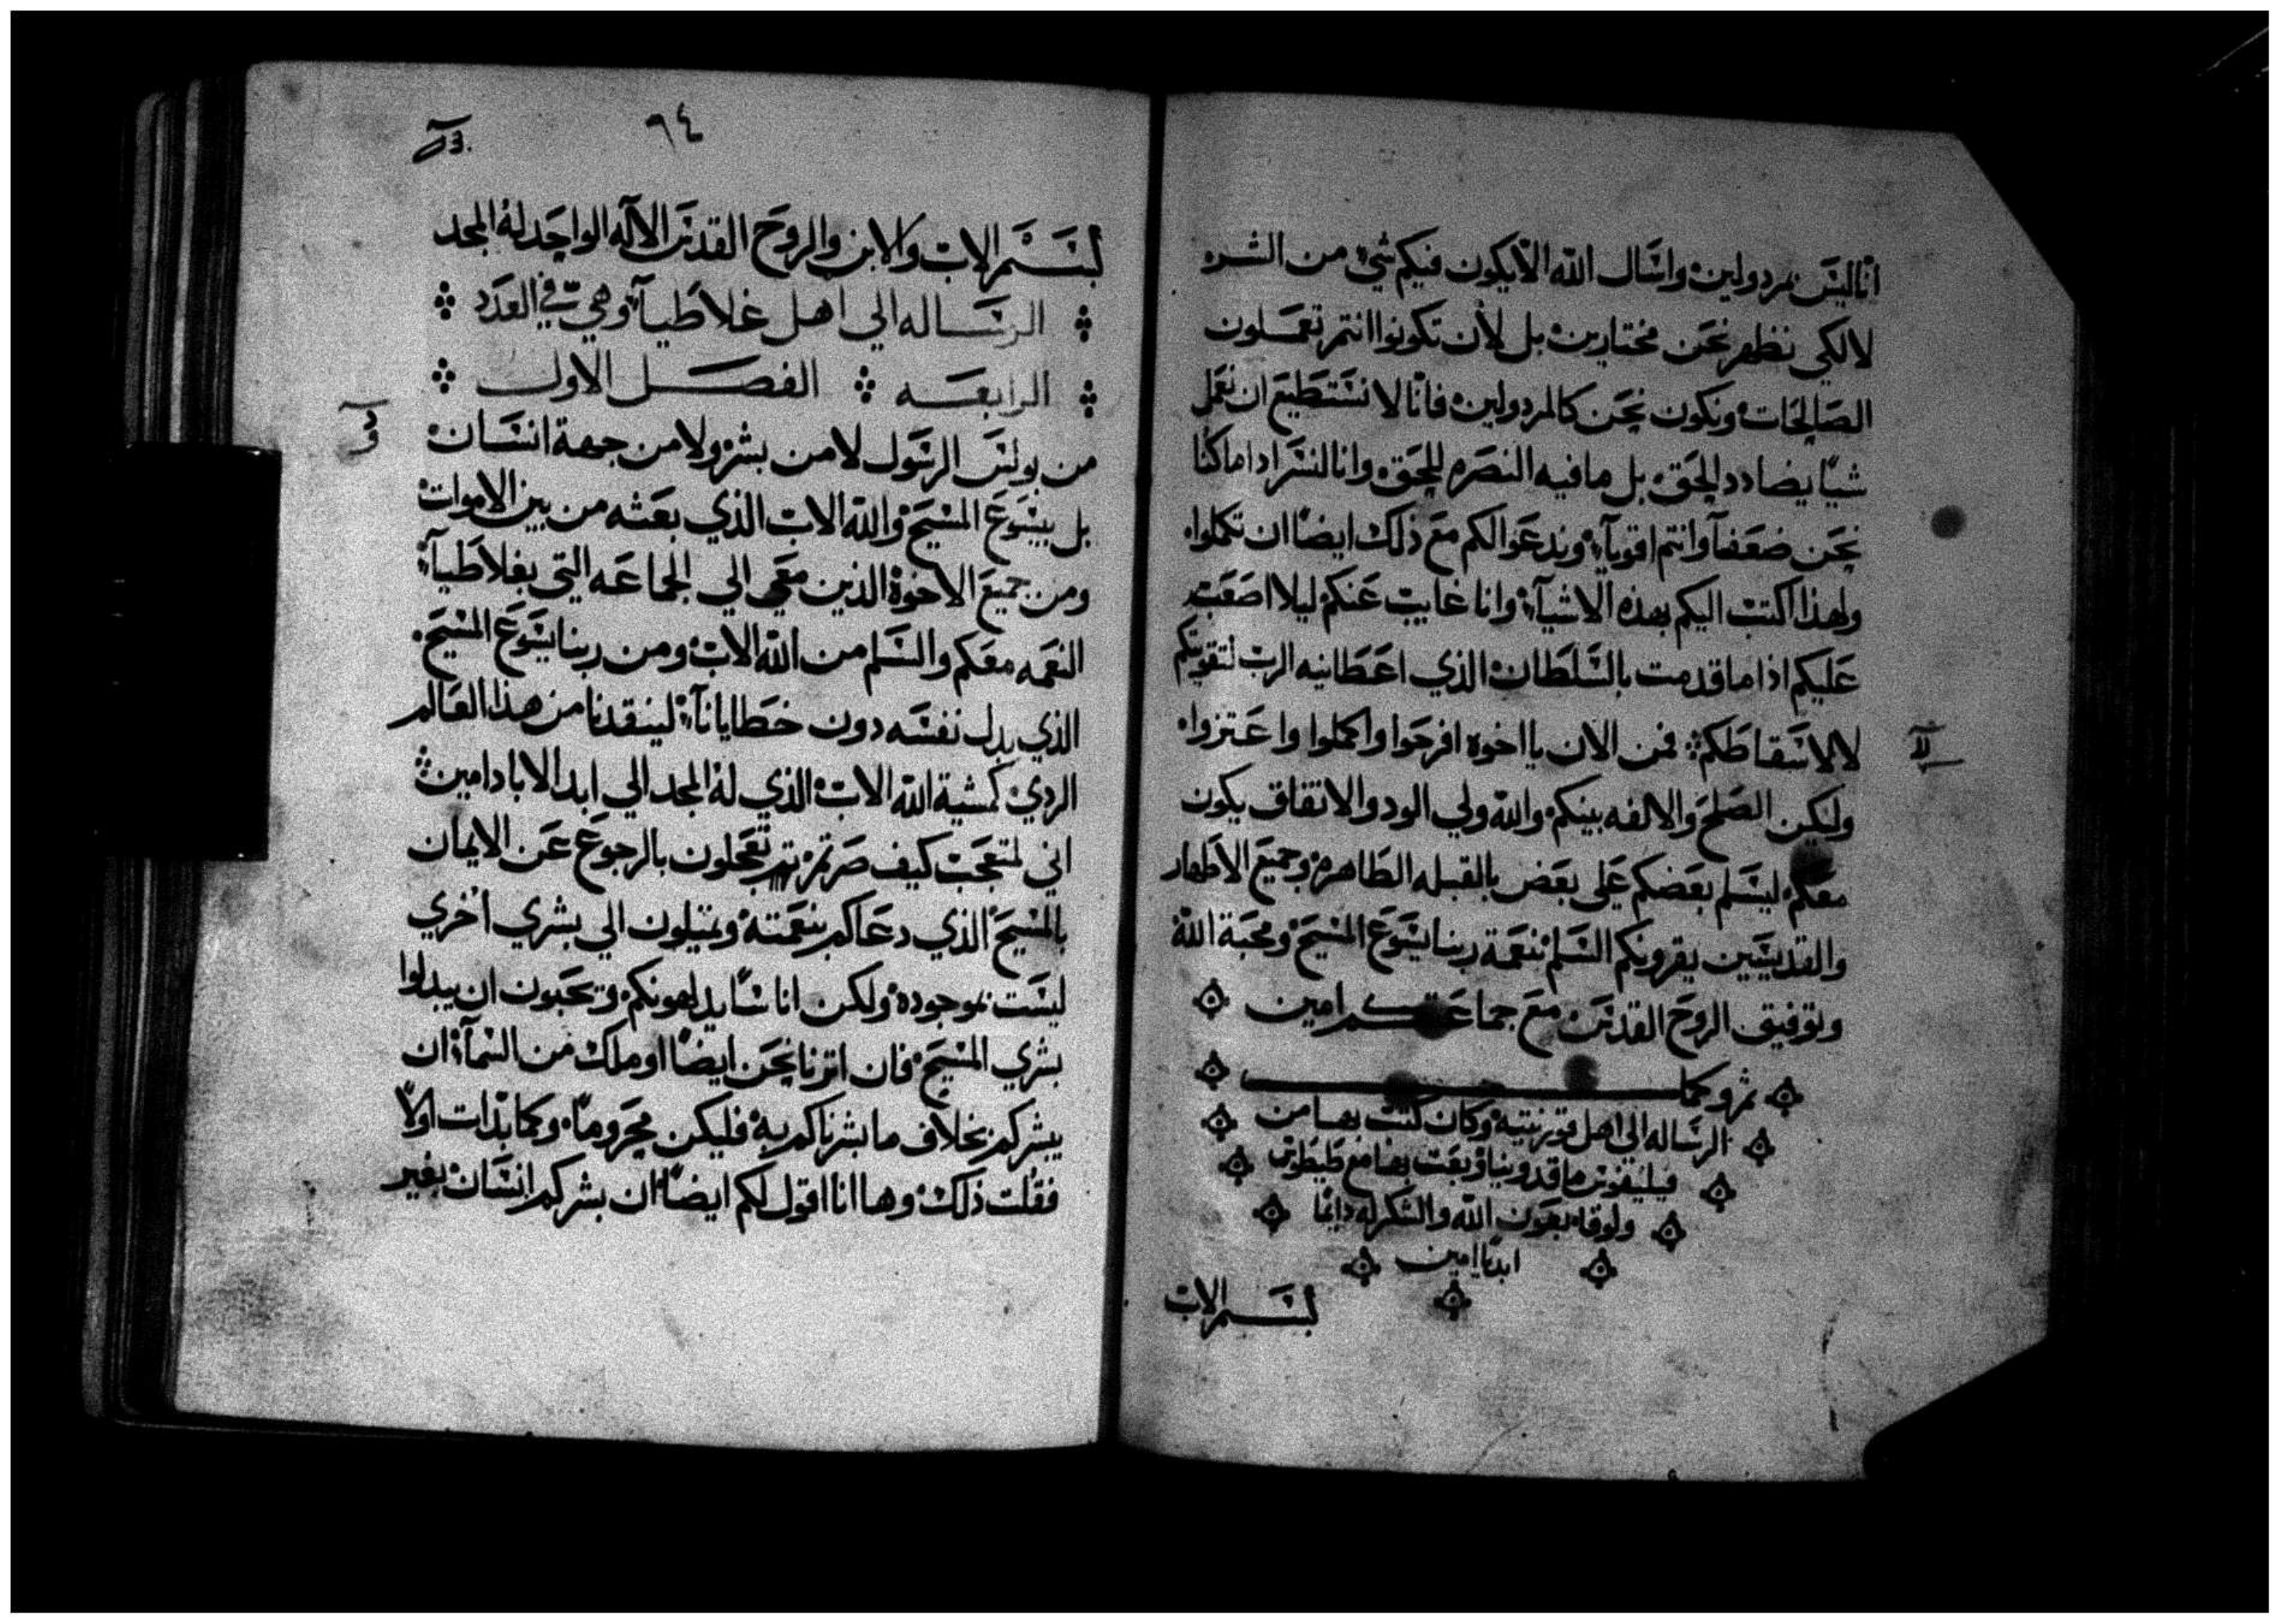 انا ليس بمردولين واسال الله الا يكون فيكم شي من الشر
لا لكي نظهر نحن مختارين بل لان تكونوا انتم تعملون
الصالحات ونكون نحن كالمردولين فانا لا نستطيع ان نعمل
شيا يضادد الحق بل ما فيه النصره للحق وانا لنسر اداما كنا
نحن ضعفآ وانتم اقويآ وندعوا لكم مع ذلك ايضا ان تكملوا
ولهذا اكتب اليكم بهذه الاشيآ وانا غايب عنكم ليلا اصعب
عليكم اذا ما قدمت بالسلطان الذي اعطانيه الرب لتقويتكم
لا لاسقاطكم فمن الان يا اخوه افرحوا واكملوا واعتزوا
وليكن الصلح والالفه بينكم والله ولي الود والاتفاق يكون
معكم ليسلم بعضكم على بعض بالقبله الطاهره وجميع الاطهار
والقديسين يقرونكم السلم نعمة ربنا يسوع المسيح ومحبة الله
وتوفيق الروح القدس مع جماعتكم امين
الرساله الى اهل قورنتيه وكان كتب بها من
فيليفوس ماقدونيا وبعث بها مع طيطوس
ولوقا بعون الله والشكر له دايما
ابدا امين
بسم الاب
٩٤
بسم الاب والابن والروح القدس الاله الواحد له المجد
الرساله الي اهل غلاطيآ وهي في العدد
الرابعه الفصل الاول
من بولس الرسول لا من بشر ولا من جهة انسان
بل بيسوع المسيح والله الاب الذي بعثه من بين الاموات
ومن جميع الاخوة الذين معي الي الجماعه التي بغلاطيآ
النعمه معكم والسلم من الله الاب ومن ربنا يسوع المسيح
الذي بدل نفسه دون خطايانآ لينقدنا من هذا العالم
الردي كمشية الله الاب الذي له المجد الي ابد الاباد امين
اني لمتعجب كيف صرتم تعجلون بالرجوع عن الايمان
بالمسيح الذي دعاكم بنعمته وتميلون الي بشري اخري
ليست بموجوده ولكن اناسا يدلهونكم وتحبون ان يبدلوا
بشري المسيح فان اترنا نحن ايضا او ملك من السمآ ان
يبشركم بخلاف ما بشرناكم به فليكن محروما وكما بدات اولا
فقلت ذلك وها انا اقول لكم ايضا ان بشركم انسان بغير